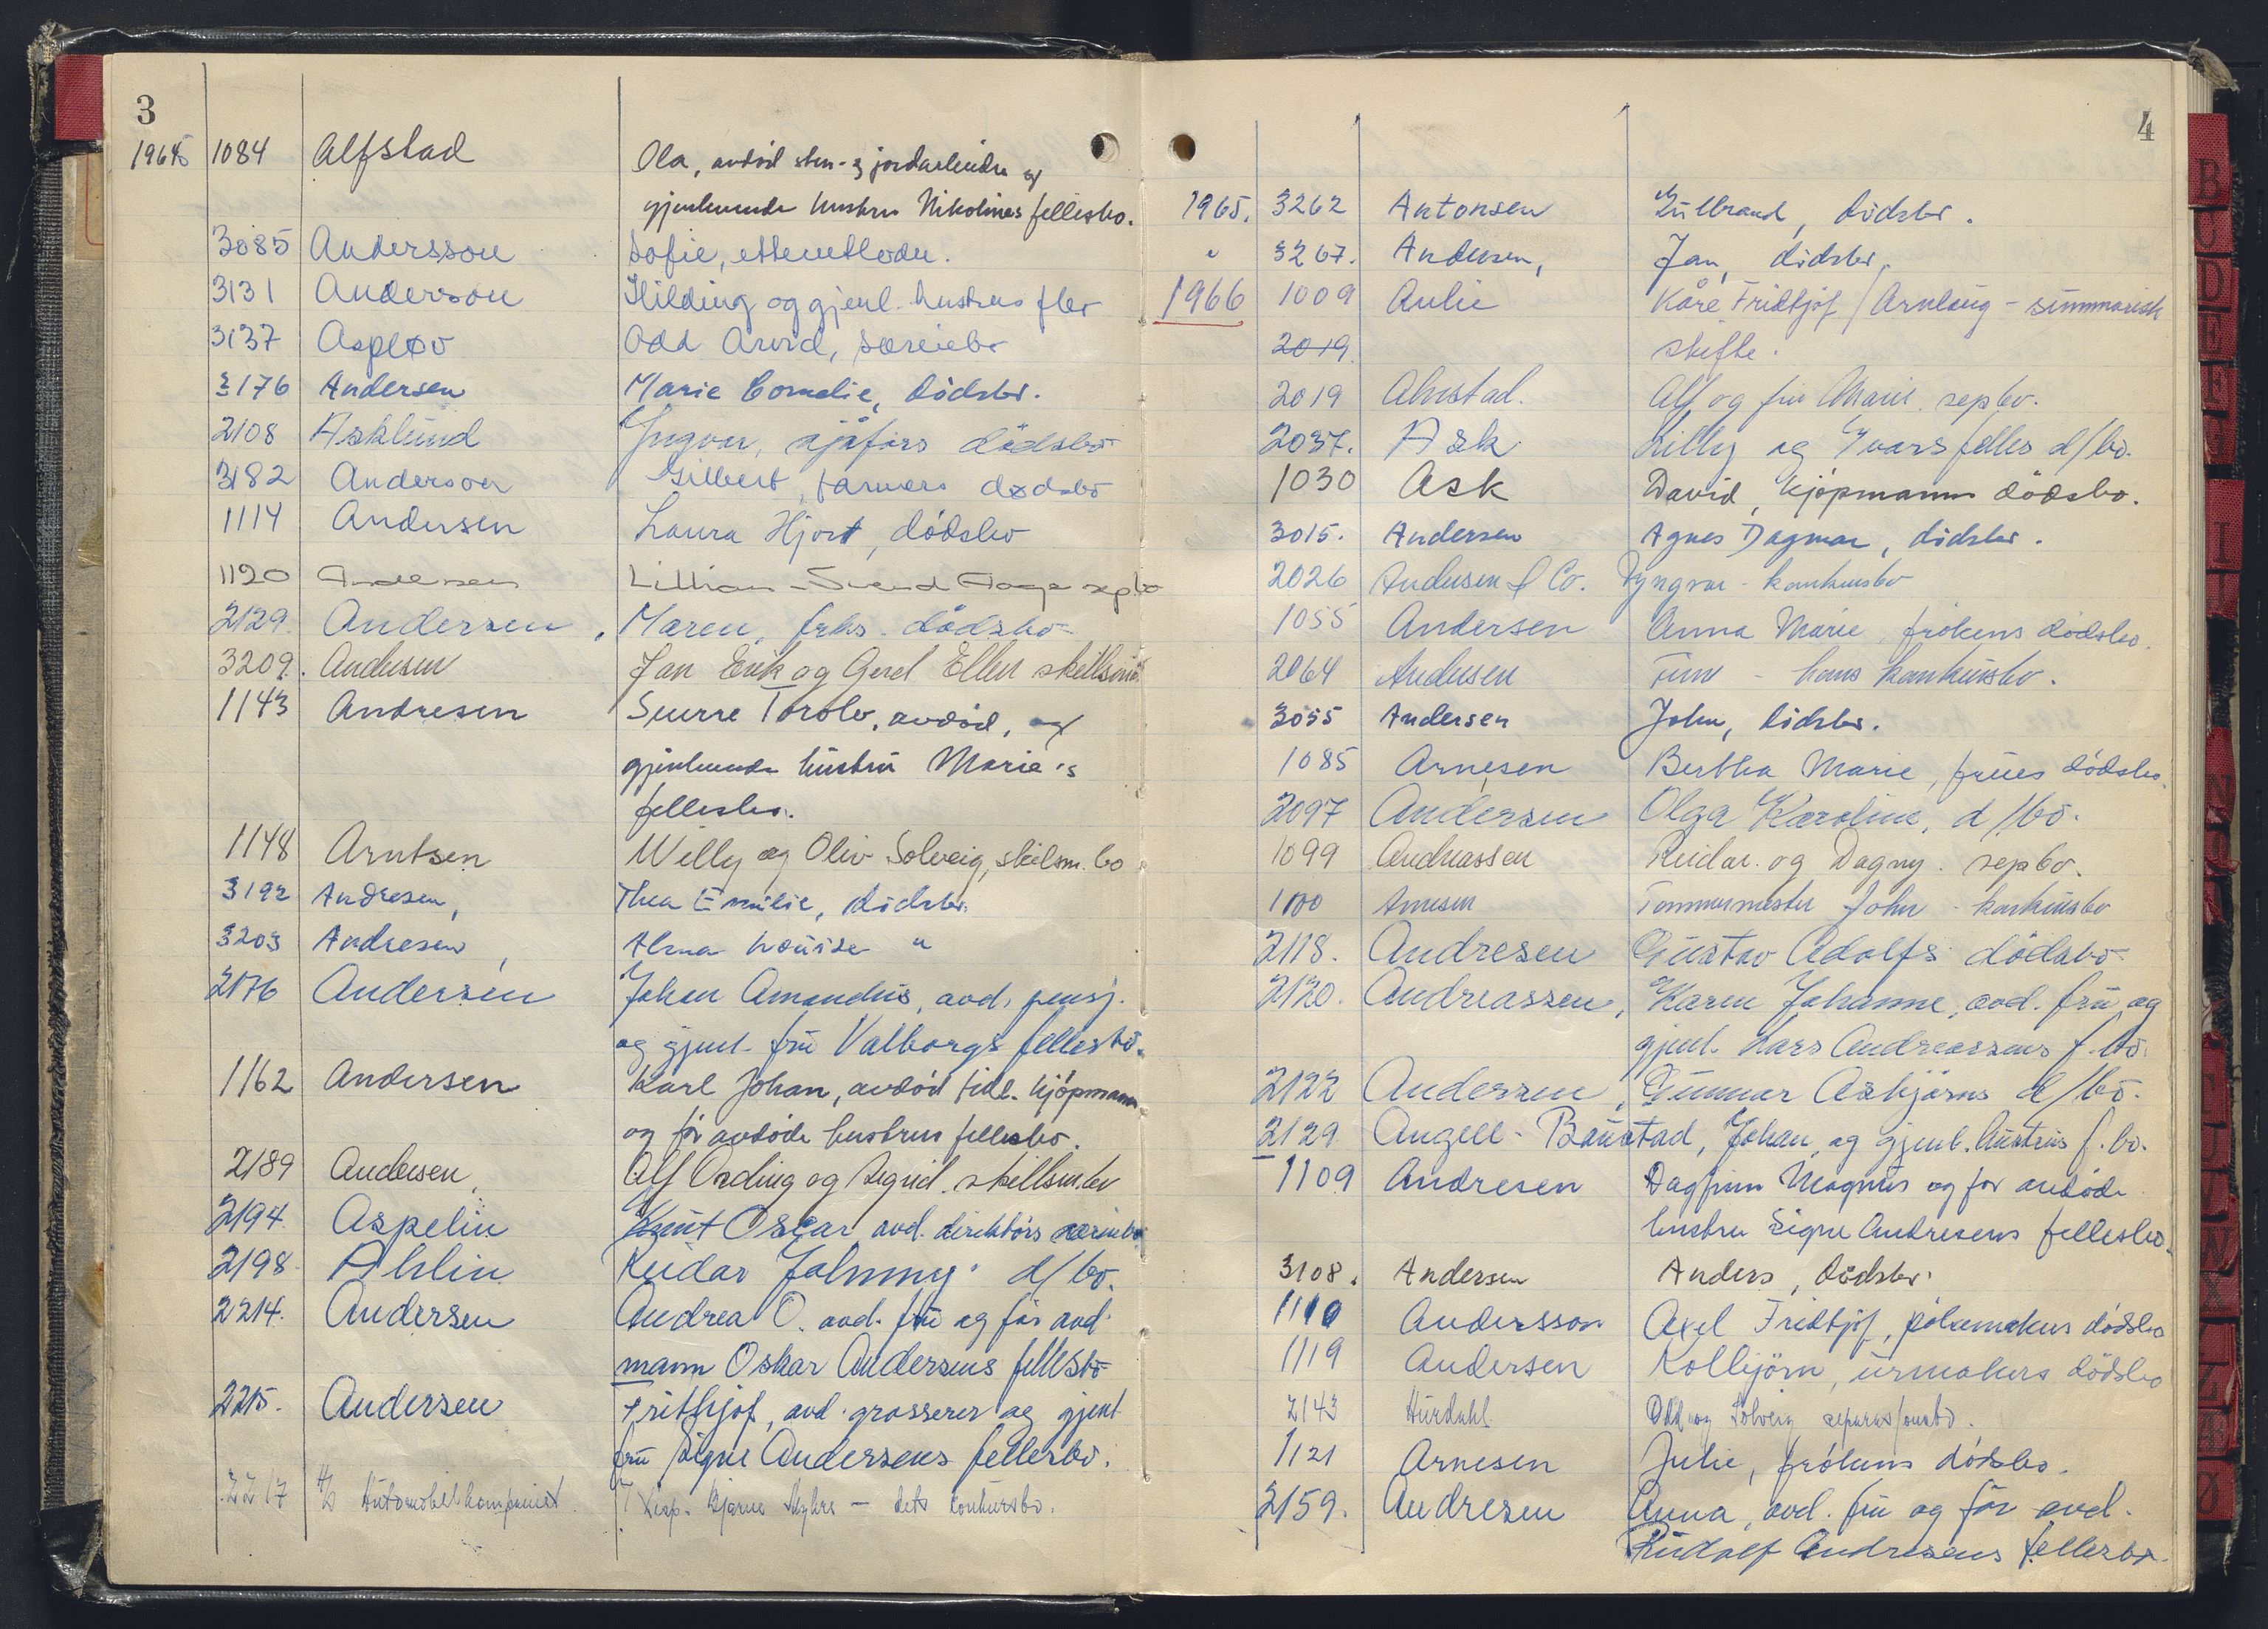 3
1965 1084 Alfstad Ola, avdød sten- og jordarbeider og
gjenlevende hustru Nikolines fellesbo.
3085 Andersson Sofie, etterutlodn.
3131 Anderson Hilding og gjenl. hustrus fbo
3137 Aspløv Odd Arvid, særeiebo
3176 Andersen Marie Cornelie, dödsbo.
2108 Asklund Yngvar, sjåførs dödsbo
3182 Anderson Gilbert, farmers dødsbo
1114 Andersen Laura Hjort, dödsbo
1120 Andersen Lillian - Svend Aage sepbo
2129. Andersen, Maren, frks. dödsbo
3209. Andersen Jan Erik og Gerd Ellen skillsm.
1143 Andresen Sverre Torolv, avdöd, og
gjenlevende hustru Marie's
fellesbo.
1148 Arntsen Willy og Oliv Solveig, skilsm. bo
3192 Andresen, Thea Emilie, dödsbo.
3203 Andresen, Alma Louise "
2176 Andersen Johan Amandus, avd. pensj.
og gjenl. fru Valborgs fellesbo.
1162 Andersen Karl Johan, avdöd tidl. kjöpmann
og för avdöde hustrus fellesbo.
2189 Andersen, Alf Arding og Sigrid, skillsm.bo
2194. Aspelin Knut Oscar avd. direktörs særeiebo
2198 Ahlin Reidar Johnny d/bo.
2214. Andersen Andrea O. avd. fru og för avd.
mann Oskar Andersens fellesbo
2215. Andersen Frithjof, avd. grosserer og gjenl.
fru Signe Andersens fellesbo.
2217 A/S Automobilkompaniet Disp. Bjarne Myhre — dets konkursbo.
4
1965. 3262 Antonsen Gulbrand, dödsbo.
" 3267. Andersen, Jan, dödsbo.
1966 1009 Aulie Kåre Fridtjof / Arnlaug - summarisk
2019. skifte.
2019 Almstad. Alf og fru Marie sepbo.
2037. Ask Lilly og Yvars felles d/bo.
1030 Ask David, kjöpmanns dödsbo.
3015. Andersen Agnes Dagmar, dödsbo.
2026 Andersen & Co. Yngvar - konkursbo
1055 Andersen Anna Marie, frökens dödsbo.
2064 Andersen Finn - hans konkursbo.
3055 Andersen John, dödsbo.
1085 Arnesen Bertha Marie, frues dödsbo.
2097 Andersen Olga Karoline, d/bo.
1099 Andreassen Reidar og Dagny. sepbo.
1100 Arnesen Tømmermester John - konkursbo
2118. Andresen Gustav Adolfs dödsbo
2120. Andreassen, Karen Johanne, avd. fru og
gjenl. Lars Andreassens f.bo.
2122 Andersen, Gunnar Asbjörns d/bo.
2129 Angell-Baustad, Johan, og gjenl. hustrus f.bo.
1109 Andresen Dagfinn Magnus og för avdöde
hustru Signe Andresens fellesbo.
3108. Andersen Anders, dödsbo.
1110 Andersson Axel Fridtjof, pölsemakers dödsbo
1119 Andersen Kolbjörn, urmakers dödsbo
2143 Hurdahl Odd og Solveig separasjonsbo.
1121 Arnesen Julie, frökens dödsbo.
2159. Andresen Anna, avd. fru og för avd.
Rudolf Andresens fellesbo.
B
D
E
F
I
N
W
X
Z
Ø